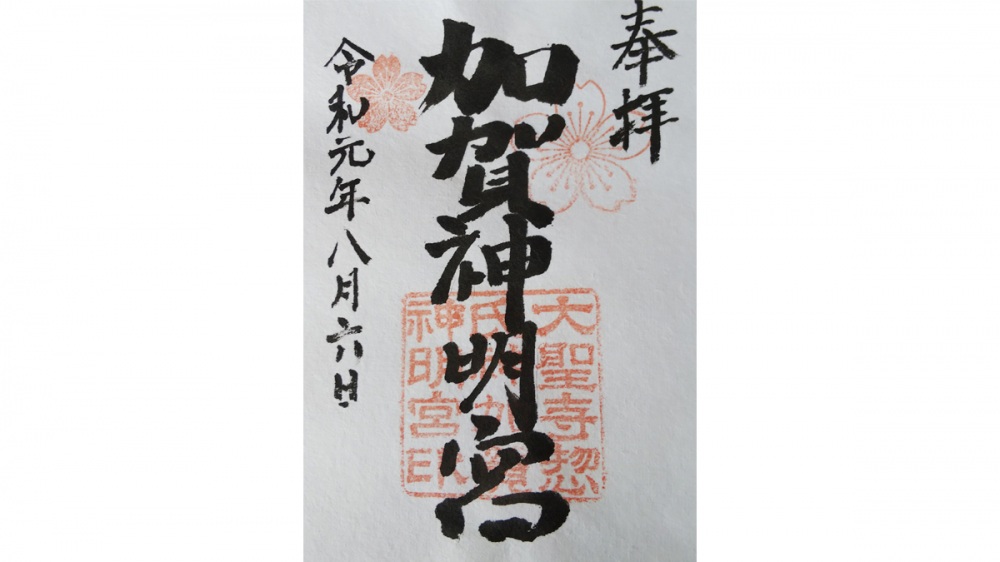 奉拝
加賀神明宮
大聖寺惣
神明宮印
令和元年八月六日